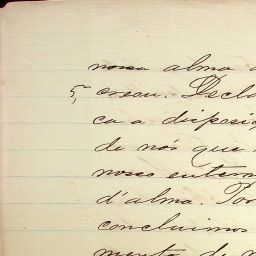 nossa alma a
5, creau. Decla
ca a disposiç
de nós que
nosso enterra
d'alma. Por
concluimos
mento de n